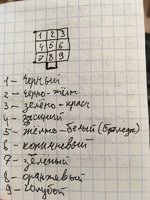 1 2 3
4 5 6
7 8 9
1 – чёрный
2 – черно-жёлт
3 – зелёно-красн
4 – синий
5 – жёлто-белый (бледно)
6 – коричневый
7 – зелёный
8 – оранжевый
9 – голубой